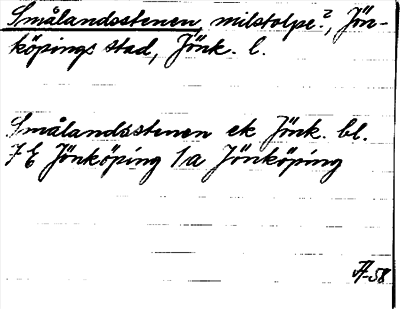 Smålandsstenen, milstolpe?, Jön-
köpings stad, Jönk. l.
Smålandsstenen ek Jönk. bl.
7 E Jönköping 1a Jönköping
-58